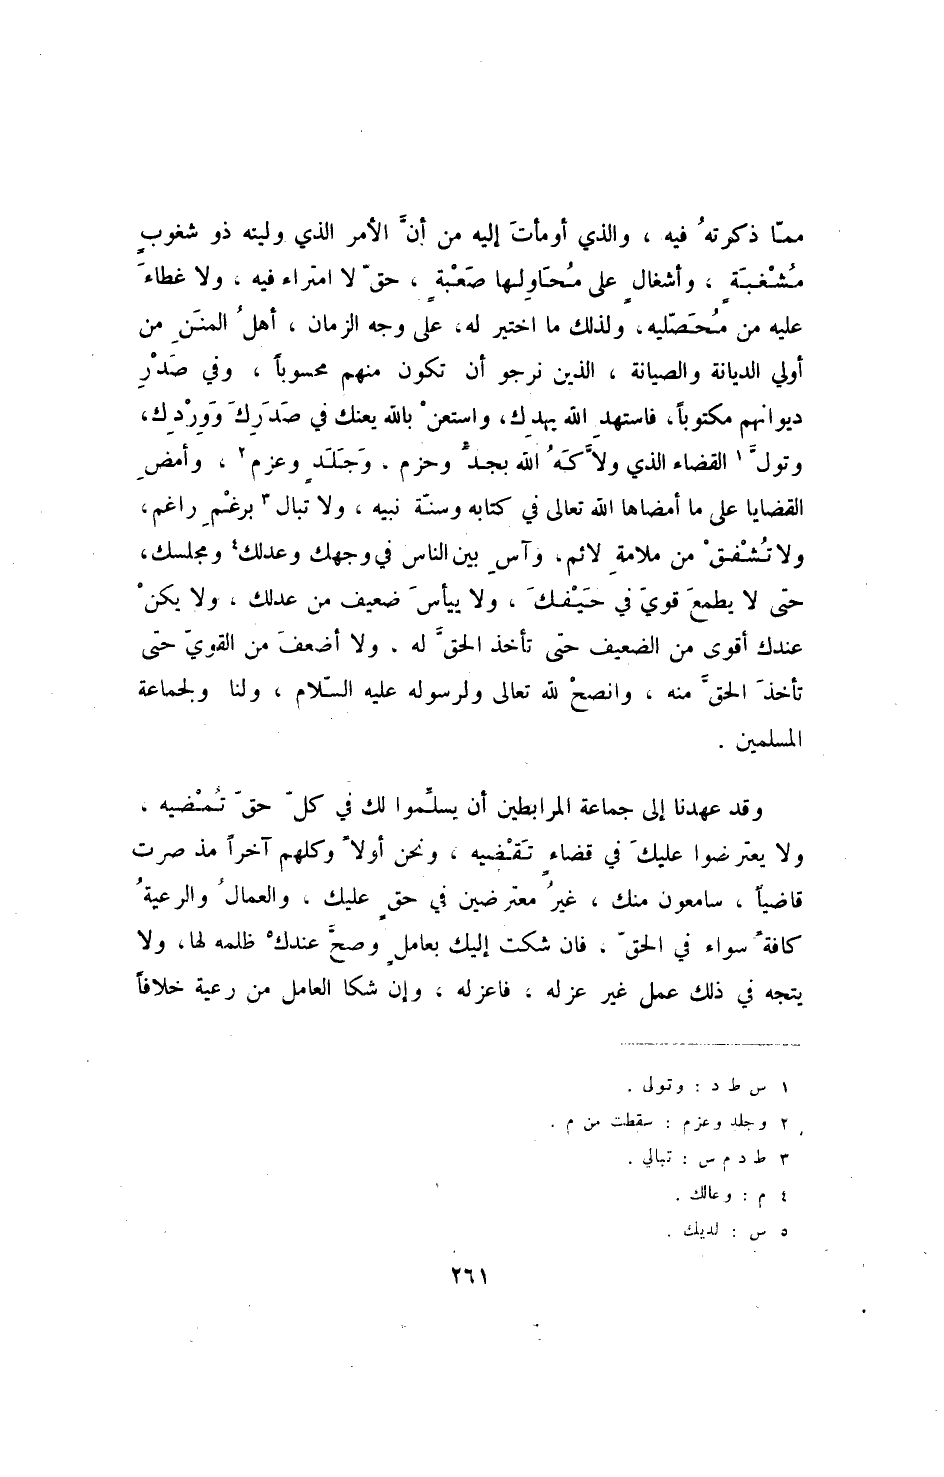 ممّا ذكرتهُ فيه ، والذي أومأتَ إليه من أنَّ الأمر الذي وليته ذو شغوبٍ
مُشْغبَةٍ ، وأشغالٍ على مُحَاوِلها صَعْبةٍ ، حقّ لا امتراء فيه ، ولا غطاءَ
عليه من مُحَصّليه ، ولذلك ما اختير له، على وجه الزمان ، أهلُ المننَِ من
أولي الديانة والصيانة ، الذين نرجو أن تكون منهم محسوباً ، وفي صَدْرِ
ديوانهم مكتوباً ، فاستهدِ الله يهدِك، واستعنْ بالله يعنك في صَدَرِكَ وَوِرْدِك،
وتولَّ ١ القضاء الذي ولاَّكَهُ الله بجدٍّ وحزم . وَجَلَدٍ وعزم ٢ ، وأمضِ
القضايا على ما أمضاها الله تعالى في كتابه وسنّة نبيه ، ولا تبال ٣ برغْمِ راغم،
ولا تُشْفقْ من ملامةِ لائم. وآسِ بين الناس في وجهك وعدلك ٤ ومجلسك،
حتّى لا يطمعَ قويّ في حَيْفكَ ، ولا ييأسَ ضعيف من عدلك ، ولا يكنْ
عندك أقوى من الضعيف حتّى تأخذ الحقَّ له . ولا أضعفَ من القويّ حتّى
تأخذَ الحقَّ منه ، وانصحْ لله تعالى ولرسوله عليه السّلام ، ولنا ولجماعة
المسلمين .
وقد عهدنا إلى جماعة المرابطين أن يسلّموا لك في كلّ حقّ تُمْضيه ،
ولا يعترضوا عليكَ في قضاءٍ تَقْضيه ، ونحن أولاً وكلهم آخراً مذ صرت
قاضياً ، سامعون منك ، غيرُ معترضين في حقٍ عليك ، والعمالُ والرعيةُ
كافةً سواء في الحقّ . فان شكت إليك بعاملٍ وصحَّ عندك ٥ ظلمه لها، ولا
يتجه في ذلك عمل غير عزله ، فاعزله ، وإن شكا العامل من رعية خلافاً
١ س ط د : وتولى .
٢ وجلد وعزم : سقطت من م .
٣ ط د م س : تبالي .
٤ م : وعالك .
٥ س : لديك .
٢٦١